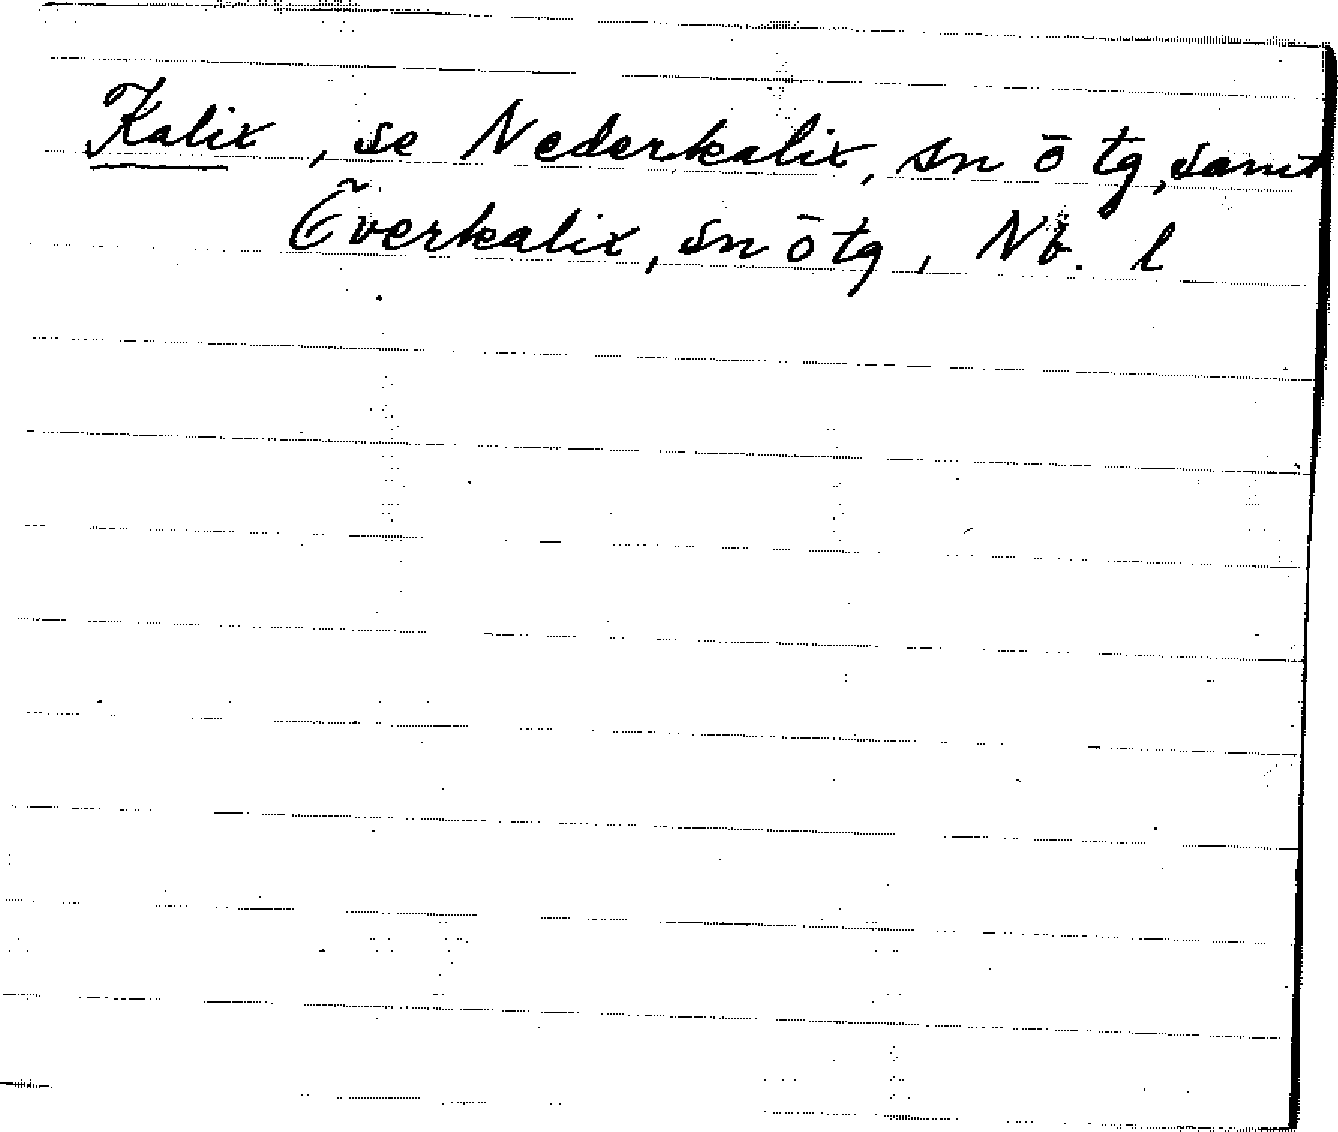 Kalix, se Nederkalix, sn ō tg, samt
Överkalix, sn ō tg, Nb. l